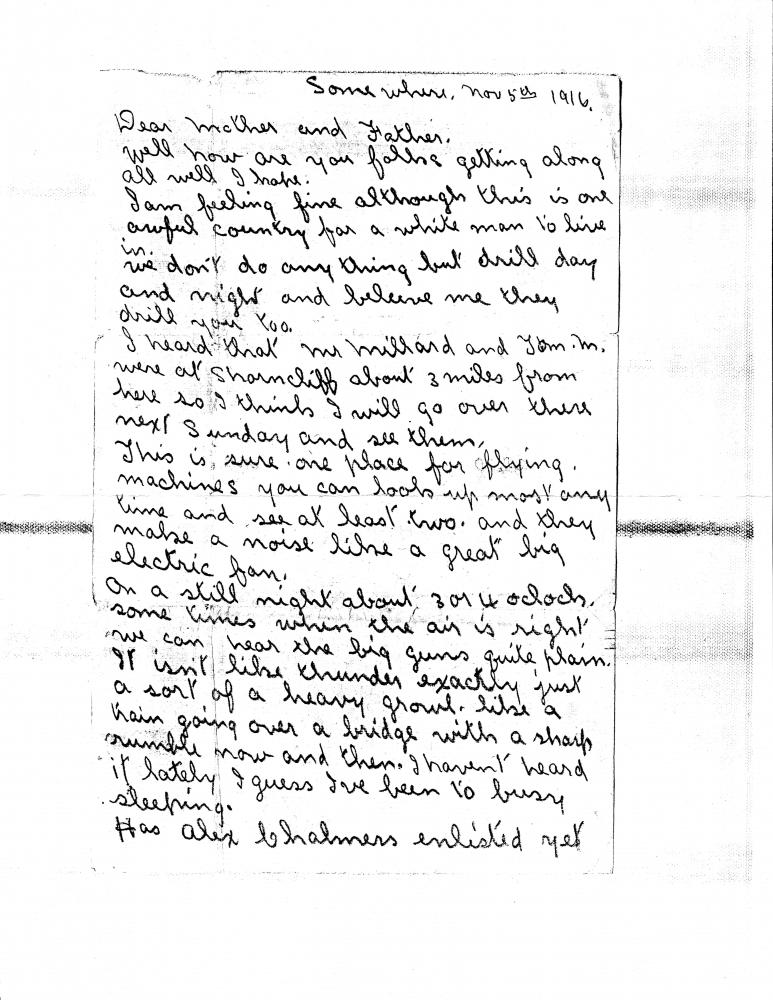 Some where, Nov 5th 1916.
Dear Mother and Father.
Well how are you folks getting along
all well I hope.
I am feeling fine although this is one
awful country for a white man to live
in.
we don't do any thing but drill day
and night and beleive me they
drill you too.
I heard that Mr Millard and Tom. M.
were at Shorncliff about 3 miles from
here so I think I will go over there
next Sunday and see them.
This is sure one place for flying.
machines you can look up most any
time and see at least two. and they
make a noise like a great big
electric fan.
On a still night about 3 or 4 oclock.
some times when the air is right
we can hear the big guns quite plain.
It isn't like thunder exactly just
a sort of a heavy growl. like a
train going over a bridge with a sharp
rumble now and then. I haven't heard
it lately I guess I've been to busy
sleeping.
Has Alex Chalmers enlisted yet